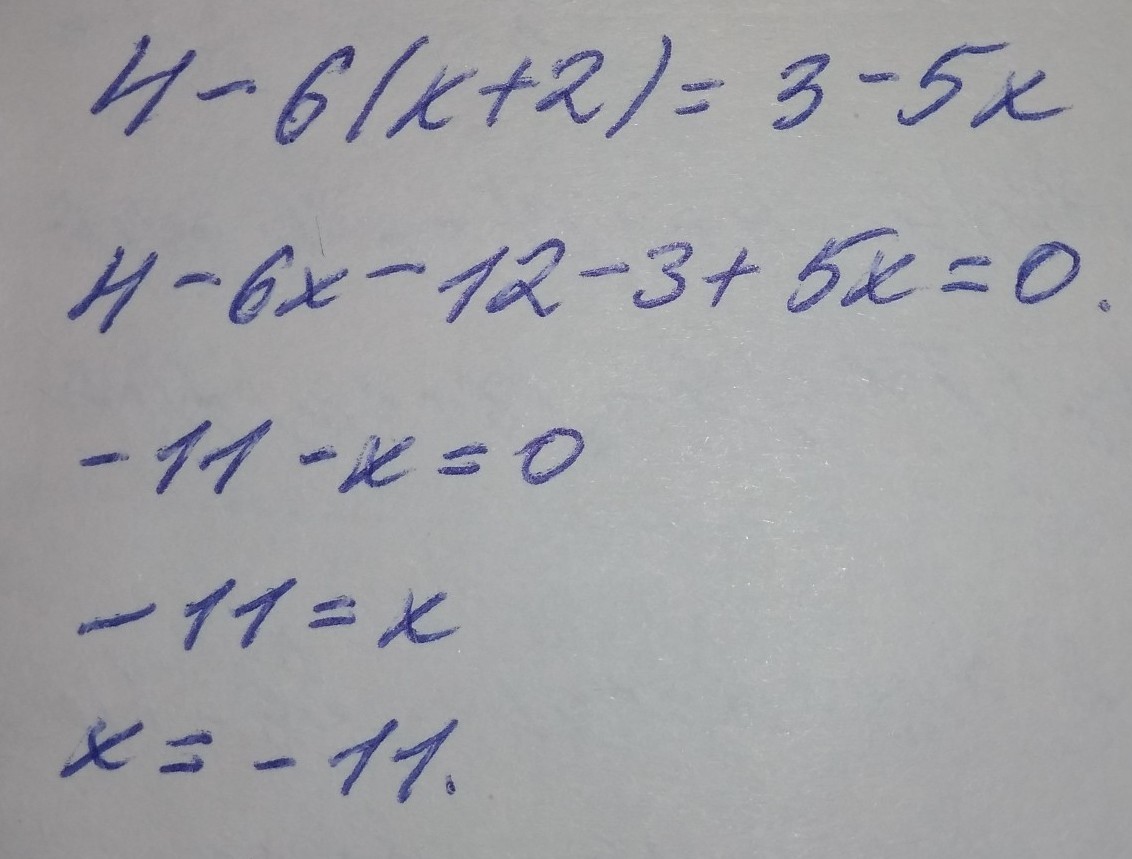 4 - 6(x+2) = 3 - 5x
4 - 6x - 12 - 3 + 5x = 0.
- 11 - x = 0
- 11 = x
x = - 11.